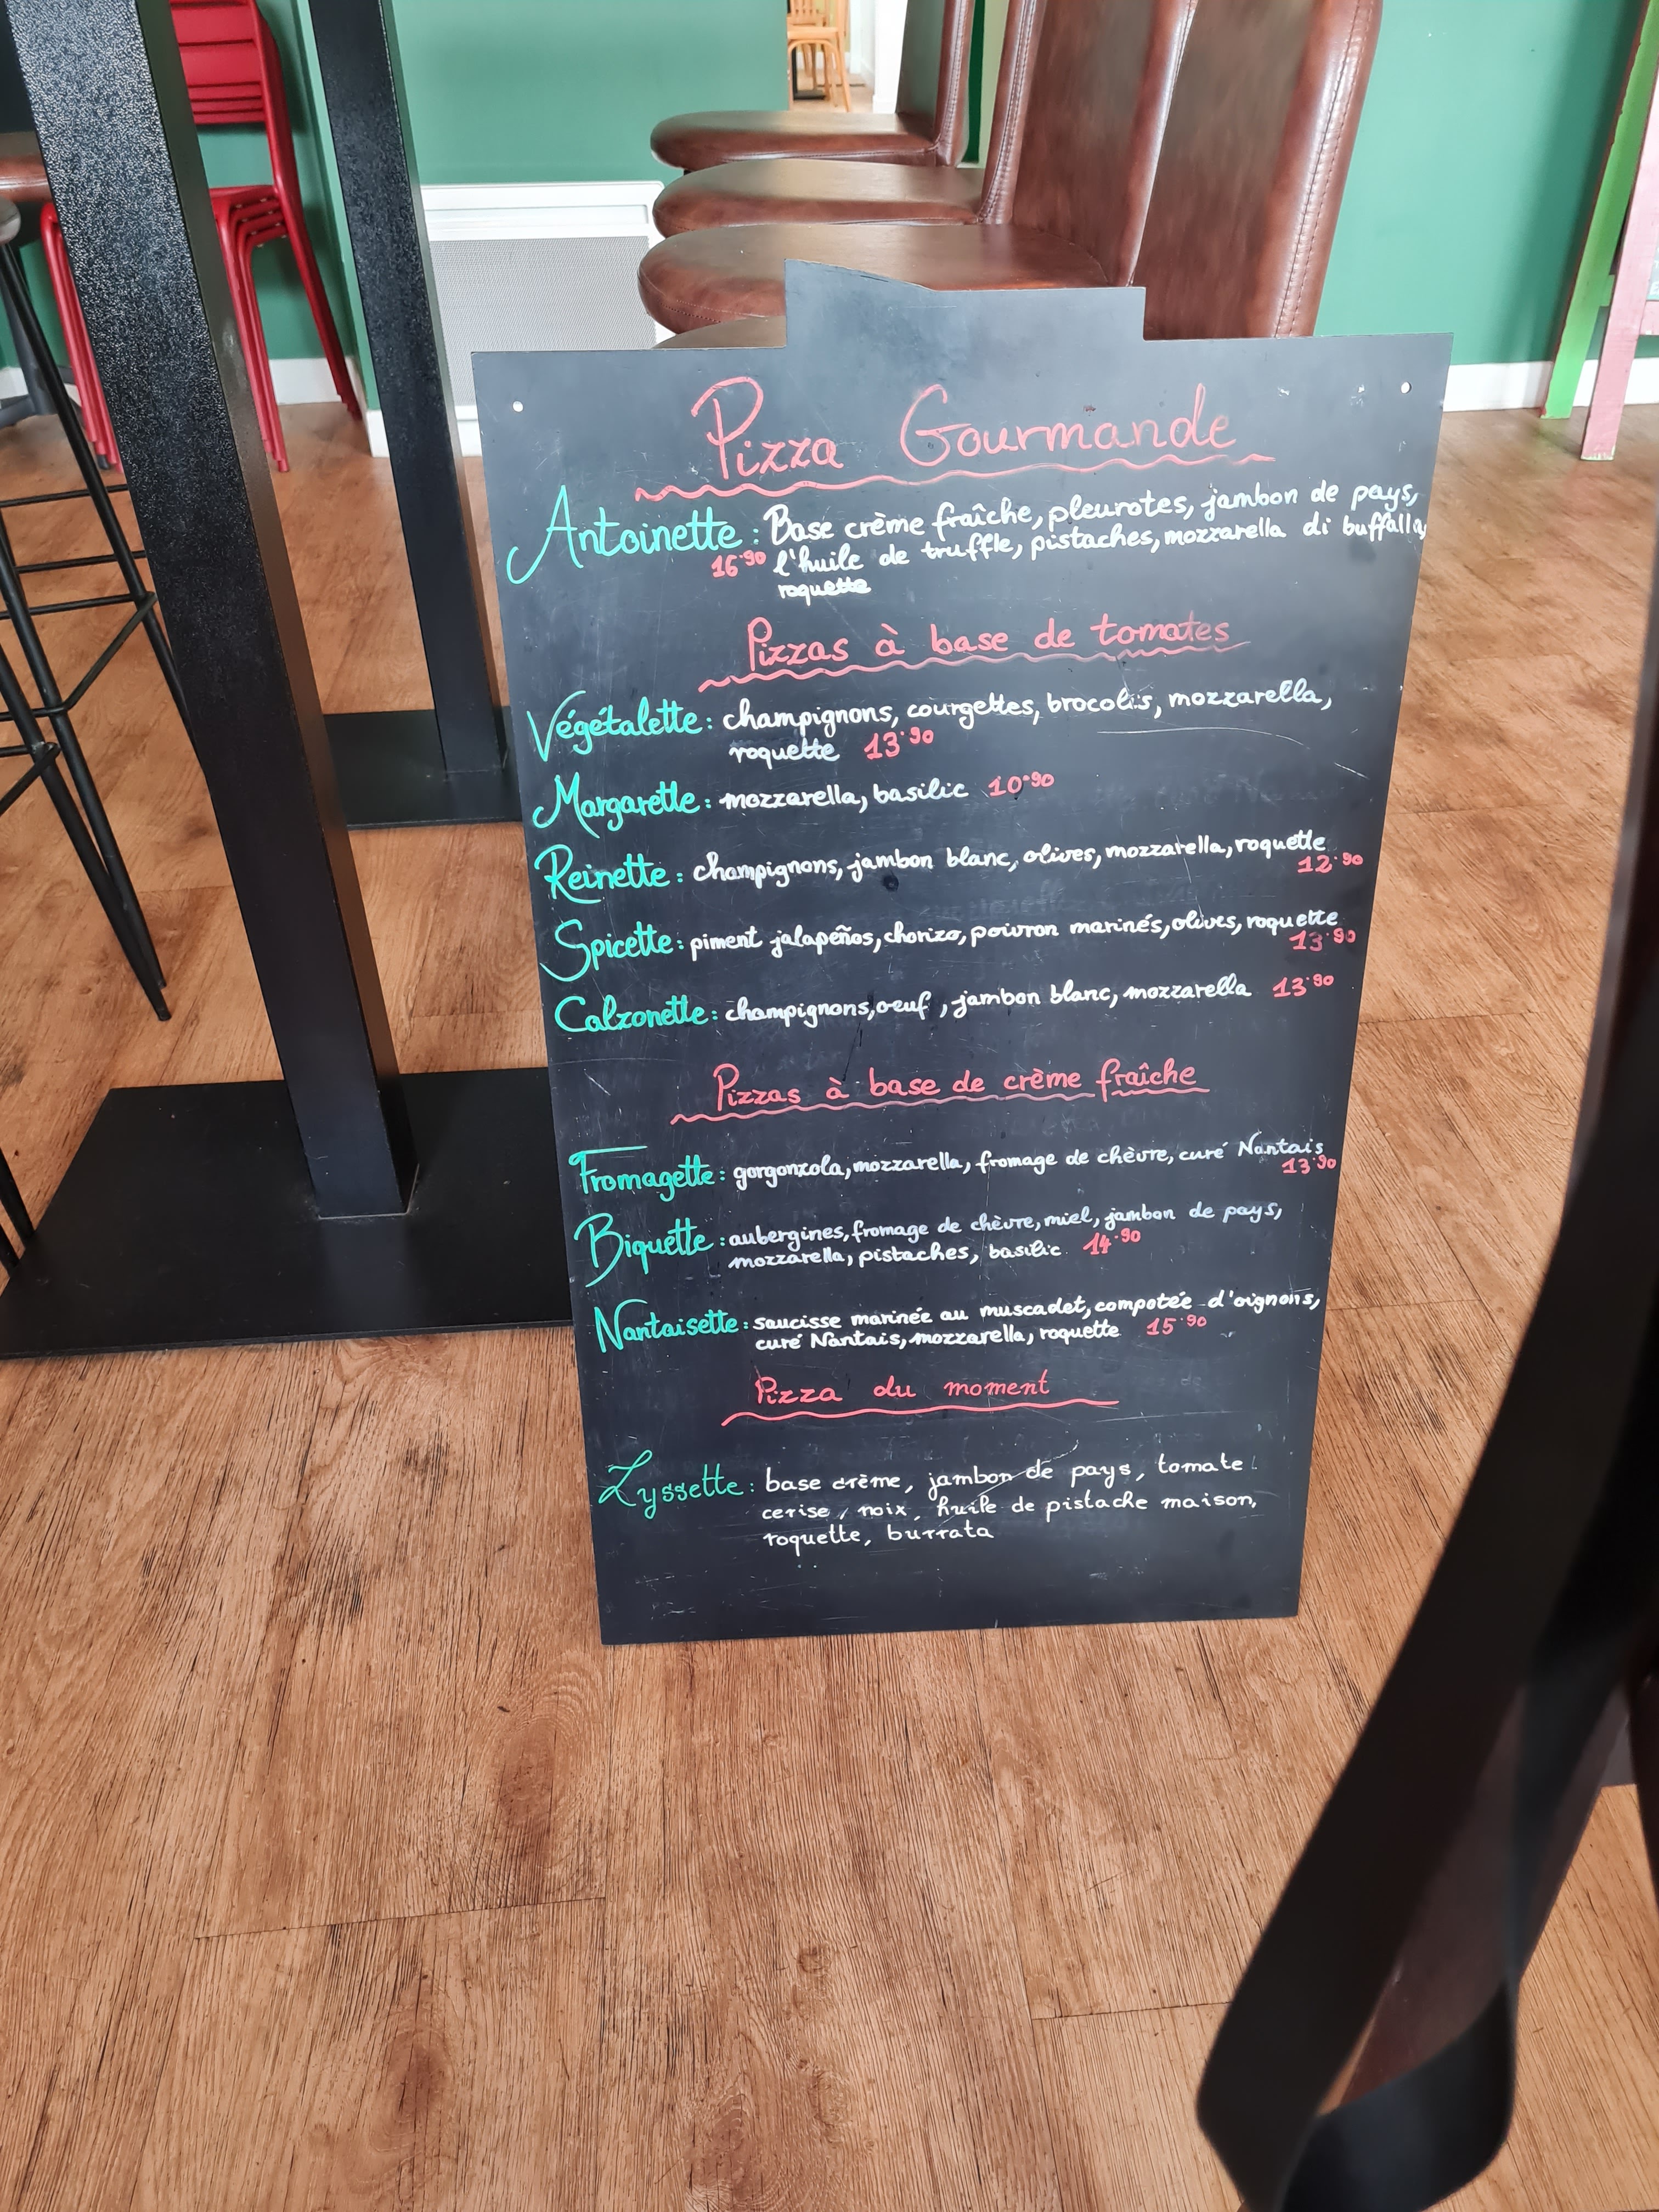 Pizza Gourmande
Antoinette : Base crème fraîche, pleurotes, jambon de pays,
16.90 l'huile de truffle, pistaches, mozzarella di buffalla,
roquette
Pizzas à base de tomates
Végétalette : champignons, courgettes, brocolis, mozzarella,
roquette 13.90
Margarette : mozzarella, basilic 10.90
Reinette : champignons, jambon blanc, olives, mozzarella, roquette
12.90
Spicette : piment jalapeños, chorizo, poivron marinés, olives, roquette
13.90
Calzonette : champignons, oeuf, jambon blanc, mozzarella 13.90
Pizzas à base de crème fraîche
Fromagette : gorgonzola, mozzarella, fromage de chèvre, curé Nantais
13.90
Biquette : aubergines, fromage de chèvre, miel, jambon de pays,
mozzarella, pistaches, basilic 14.90
Nantaisette : saucisse marinée au muscadet, compotée d'oignons,
curé Nantais, mozzarella, roquette 15.90
Pizza du moment
Lyssette : base crème, jambon de pays, tomate
cerise, noix, huile de pistache maison,
roquette, burrata